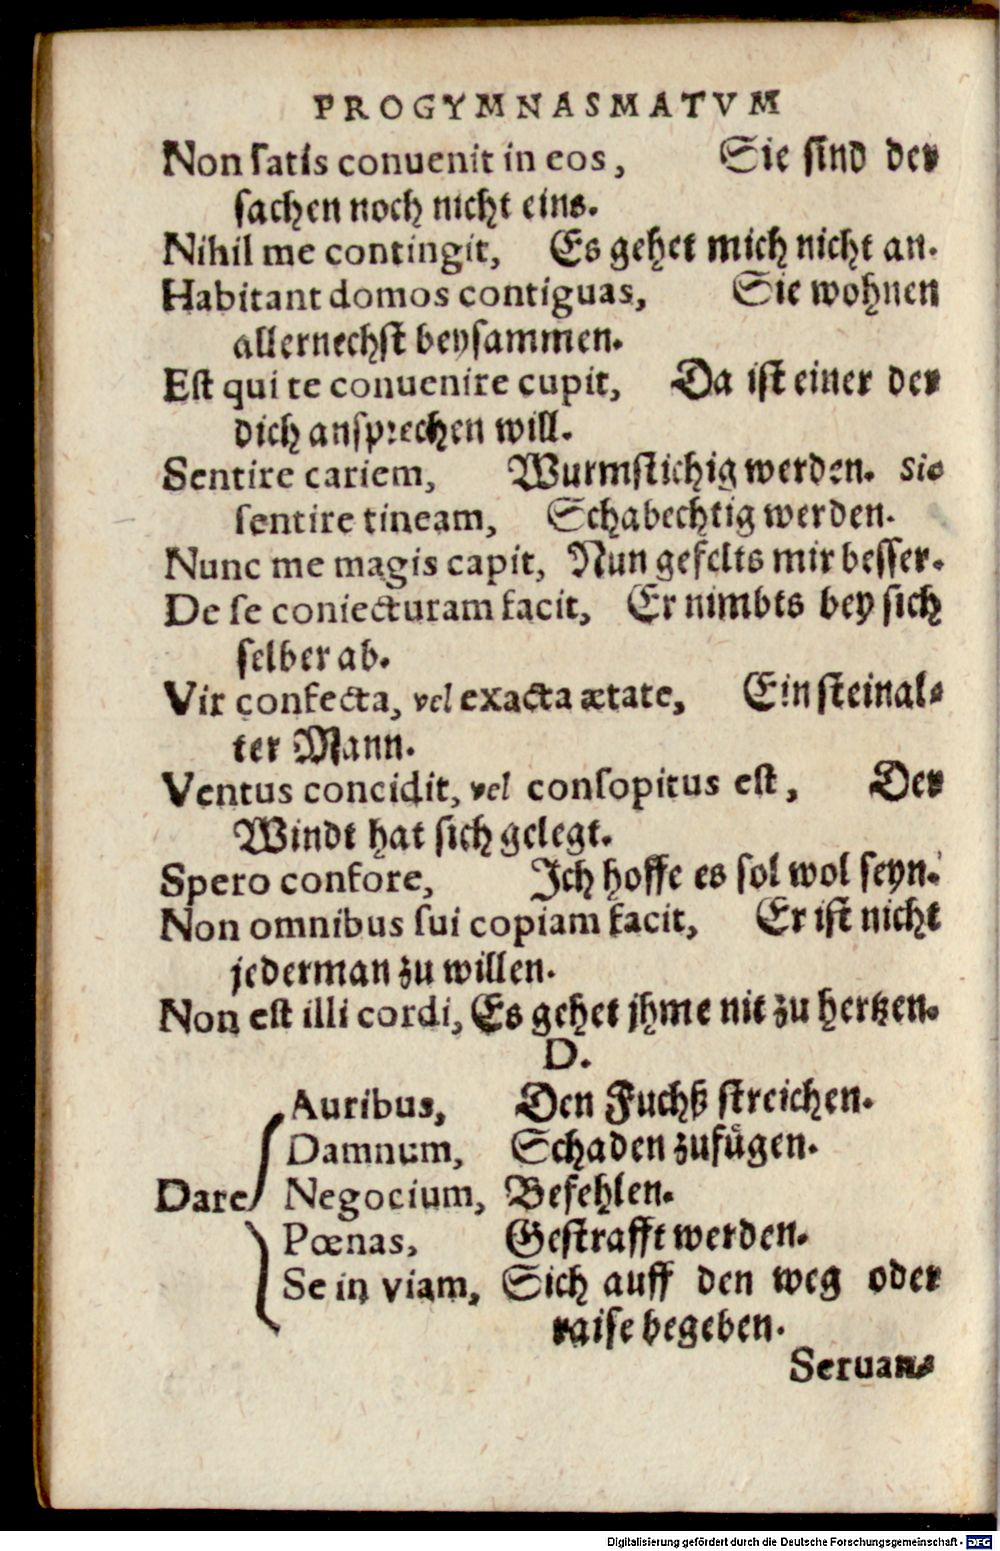 PROGYMNASMATVM
Non ſatis conuenit in eos, Sie ſind der
ſachen noch nicht eins.
Nihil me contingit, Es gehet mich nicht an.
Habitant domos contiguas, Sie wohnen
allernechſt beyſammen.
Eſt qui te conuenire cupit, Da iſt einer der
dich anſprechen will.
Sentire cariem, Wurmſtichig werden. Sic
ſentire tineam, Schabechtig werden.
Nunc me magis capit, Nun gefelts mir beſſer.
De ſe coniecturam facit, Er nimbts bey ſich
ſelber ab.
Vir confecta, vel exacta ætate, Ein ſteinal-
ter Mann.
Ventus concidit, vel conſopitus eſt, Der
Windt hat ſich gelegt.
Spero confore, Ich hoffe es ſol wol ſeyn.
Non omnibus ſui copiam facit, Er iſt nicht
jederman zu willen.
Non eſt illi cordi, Es gehet jhme nit zu hertzen.
D.
Auribus, Den Fuchß ſtreichen.
Damnum, Schaden zufuͤgen.
Dare Negocium, Befehlen.
Pœnas, Geſtrafft werden.
Se in viam, Sich auff den weg oder
raiſe begeben.
Seruan-
Digitalisierung gefördert durch die Deutsche Forschungsgemeinschaft - DFG